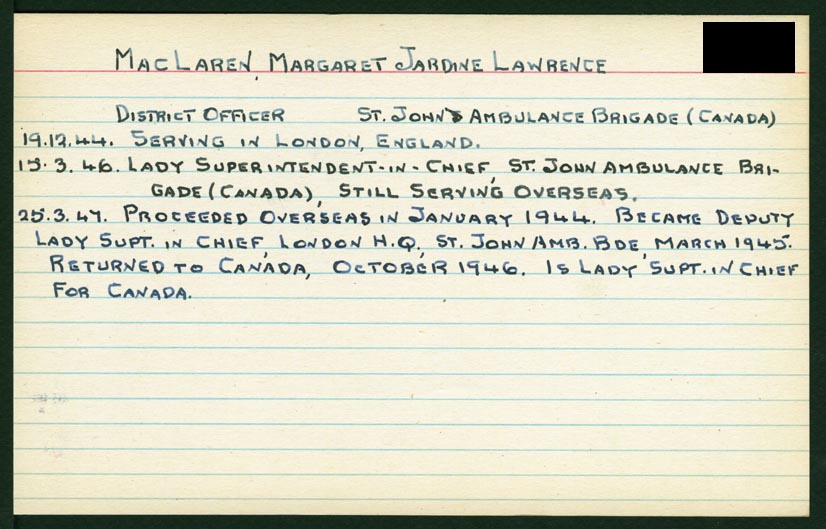 MACLAREN, MARGARET JARDINE LAWRENCE
DISTRICT OFFICER ST. JOHN'S AMBULANCE BRIGADE (CANADA)
19.12.44. SERVING IN LONDON, ENGLAND.
15.3.46. LADY SUPERINTENDENT-IN-CHIEF, ST. JOHN AMBULANCE BRI-
GADE (CANADA), STILL SERVING OVERSEAS.
25.3.47. PROCEEDED OVERSEAS IN JANUARY 1944. BECAME DEPUTY
LADY SUPT. IN CHIEF, LONDON H.Q., ST. JOHN AMB. BDE, MARCH 1945.
RETURNED TO CANADA, OCTOBER 1946. IS LADY SUPT. IN CHIEF
FOR CANADA.